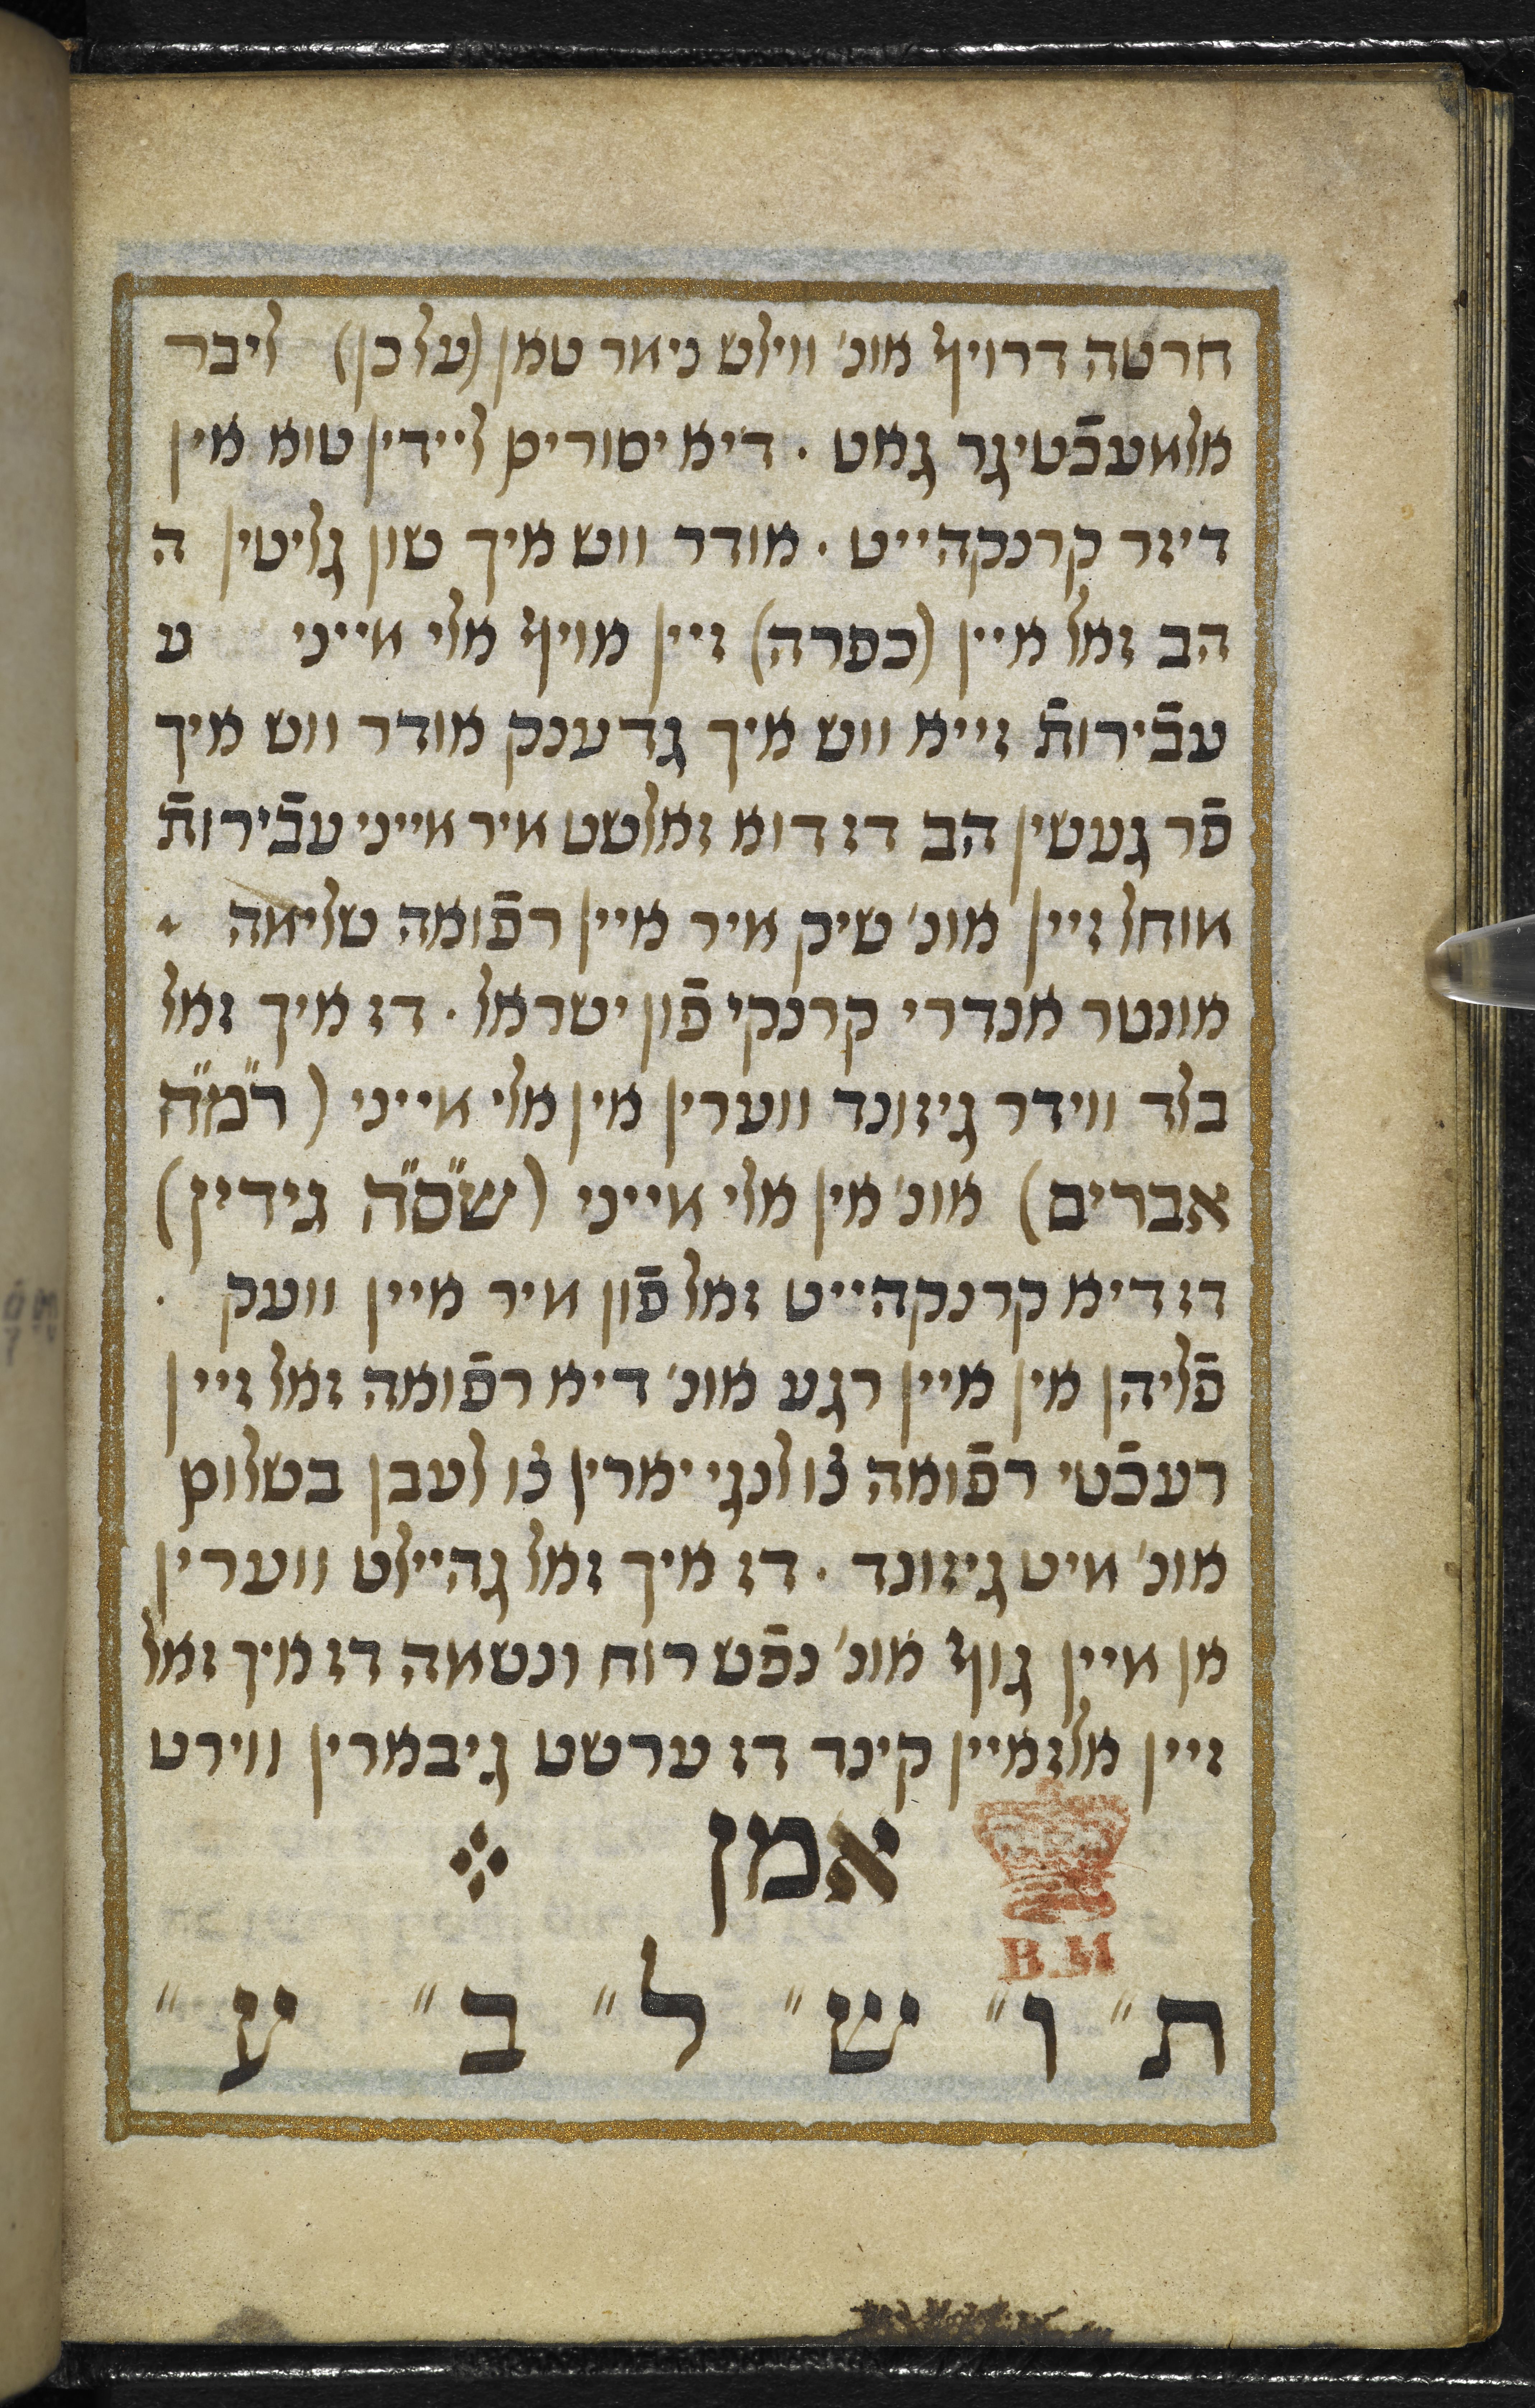 חרטה דרויף אונ' ווילש נימר טאן (על כן) ליבר
אלמעכֿטיגר גאט . דיא יסורים ליידין טוא אין
דיזר קרנקהייט . אודר ווש איך שון גליטין ה
הב זאל איין (כפרה) זיין אויף אלי מייני ע
עבֿירותֿ זייא ווש איך גדענק אודר ווש איך
פֿר געשין הב דז דוא זאלשט מיר מייני עבֿירותֿ
מוחל זיין אונ' שיק מיר איין רפֿואה שלימה
אונטר אנדרי קרנקי פֿון ישראל . דז איך זאל
בלד ווידר גיזונד ווערין אין אלי מייני (ר"מ"ח
אברים) אונ' אין אלי מייני (ש"ס"ה גידין)
דז דיא קרנקהייט זאל פֿון מיר איין וועק .
פֿליהן אין איין רגע אונ' דיא רפֿואה זאל זיין
רעכֿטי רפֿואה צו לנגי יארין צו לעבן בשלום
אונ' מיט גיזונד . דז איך זאל גהיילט ווערין
אן מיין גוף אונ' נפֿש רוח ונשמה דז איך זאל
זיין אלז איין קינד דז ערשט גיבארין ווירט
אמן
B.M
ת" ו" ש" ל" ב" ע"